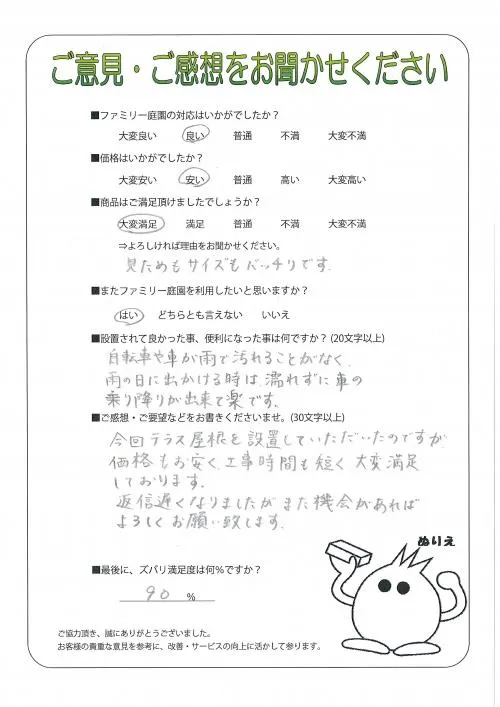 ご意見・ご感想をお聞かせください
■ファミリー庭園の対応はいかがでしたか？
大変良い 良い 普通 不満 大変不満
■価格はいかがでしたか？
大変安い 安い 普通 高い 大変高い
■商品はご満足頂けましたでしょうか？
大変満足 満足 普通 不満 大変不満
⇒よろしければ理由をお聞かせください。
見ためもサイズもバッチリです.
■またファミリー庭園を利用したいと思いますか？
はい どちらとも言えない いいえ
■設置されて良かった事、便利になった事は何ですか？(20文字以上)
自転車や車が雨で汚れることがなく、
雨の日に出かける時は、濡れずに車の
乗り降りが出来て楽です.
■ご感想・ご要望などをお書きくださいませ。(30文字以上)
今回テラス屋根を設置していただいたのですが
価格もお安く、工事時間も短く大変満足
しております.
返信遅くなりましたがまた機会があれば
よろしくお願い致します.
ぬりえ
■最後に、ズバリ満足度は何％ですか？
90 %
ご協力頂き、誠にありがとうございました。
お客様の貴重な意見を参考に、改善・サービスの向上に活かして参ります。